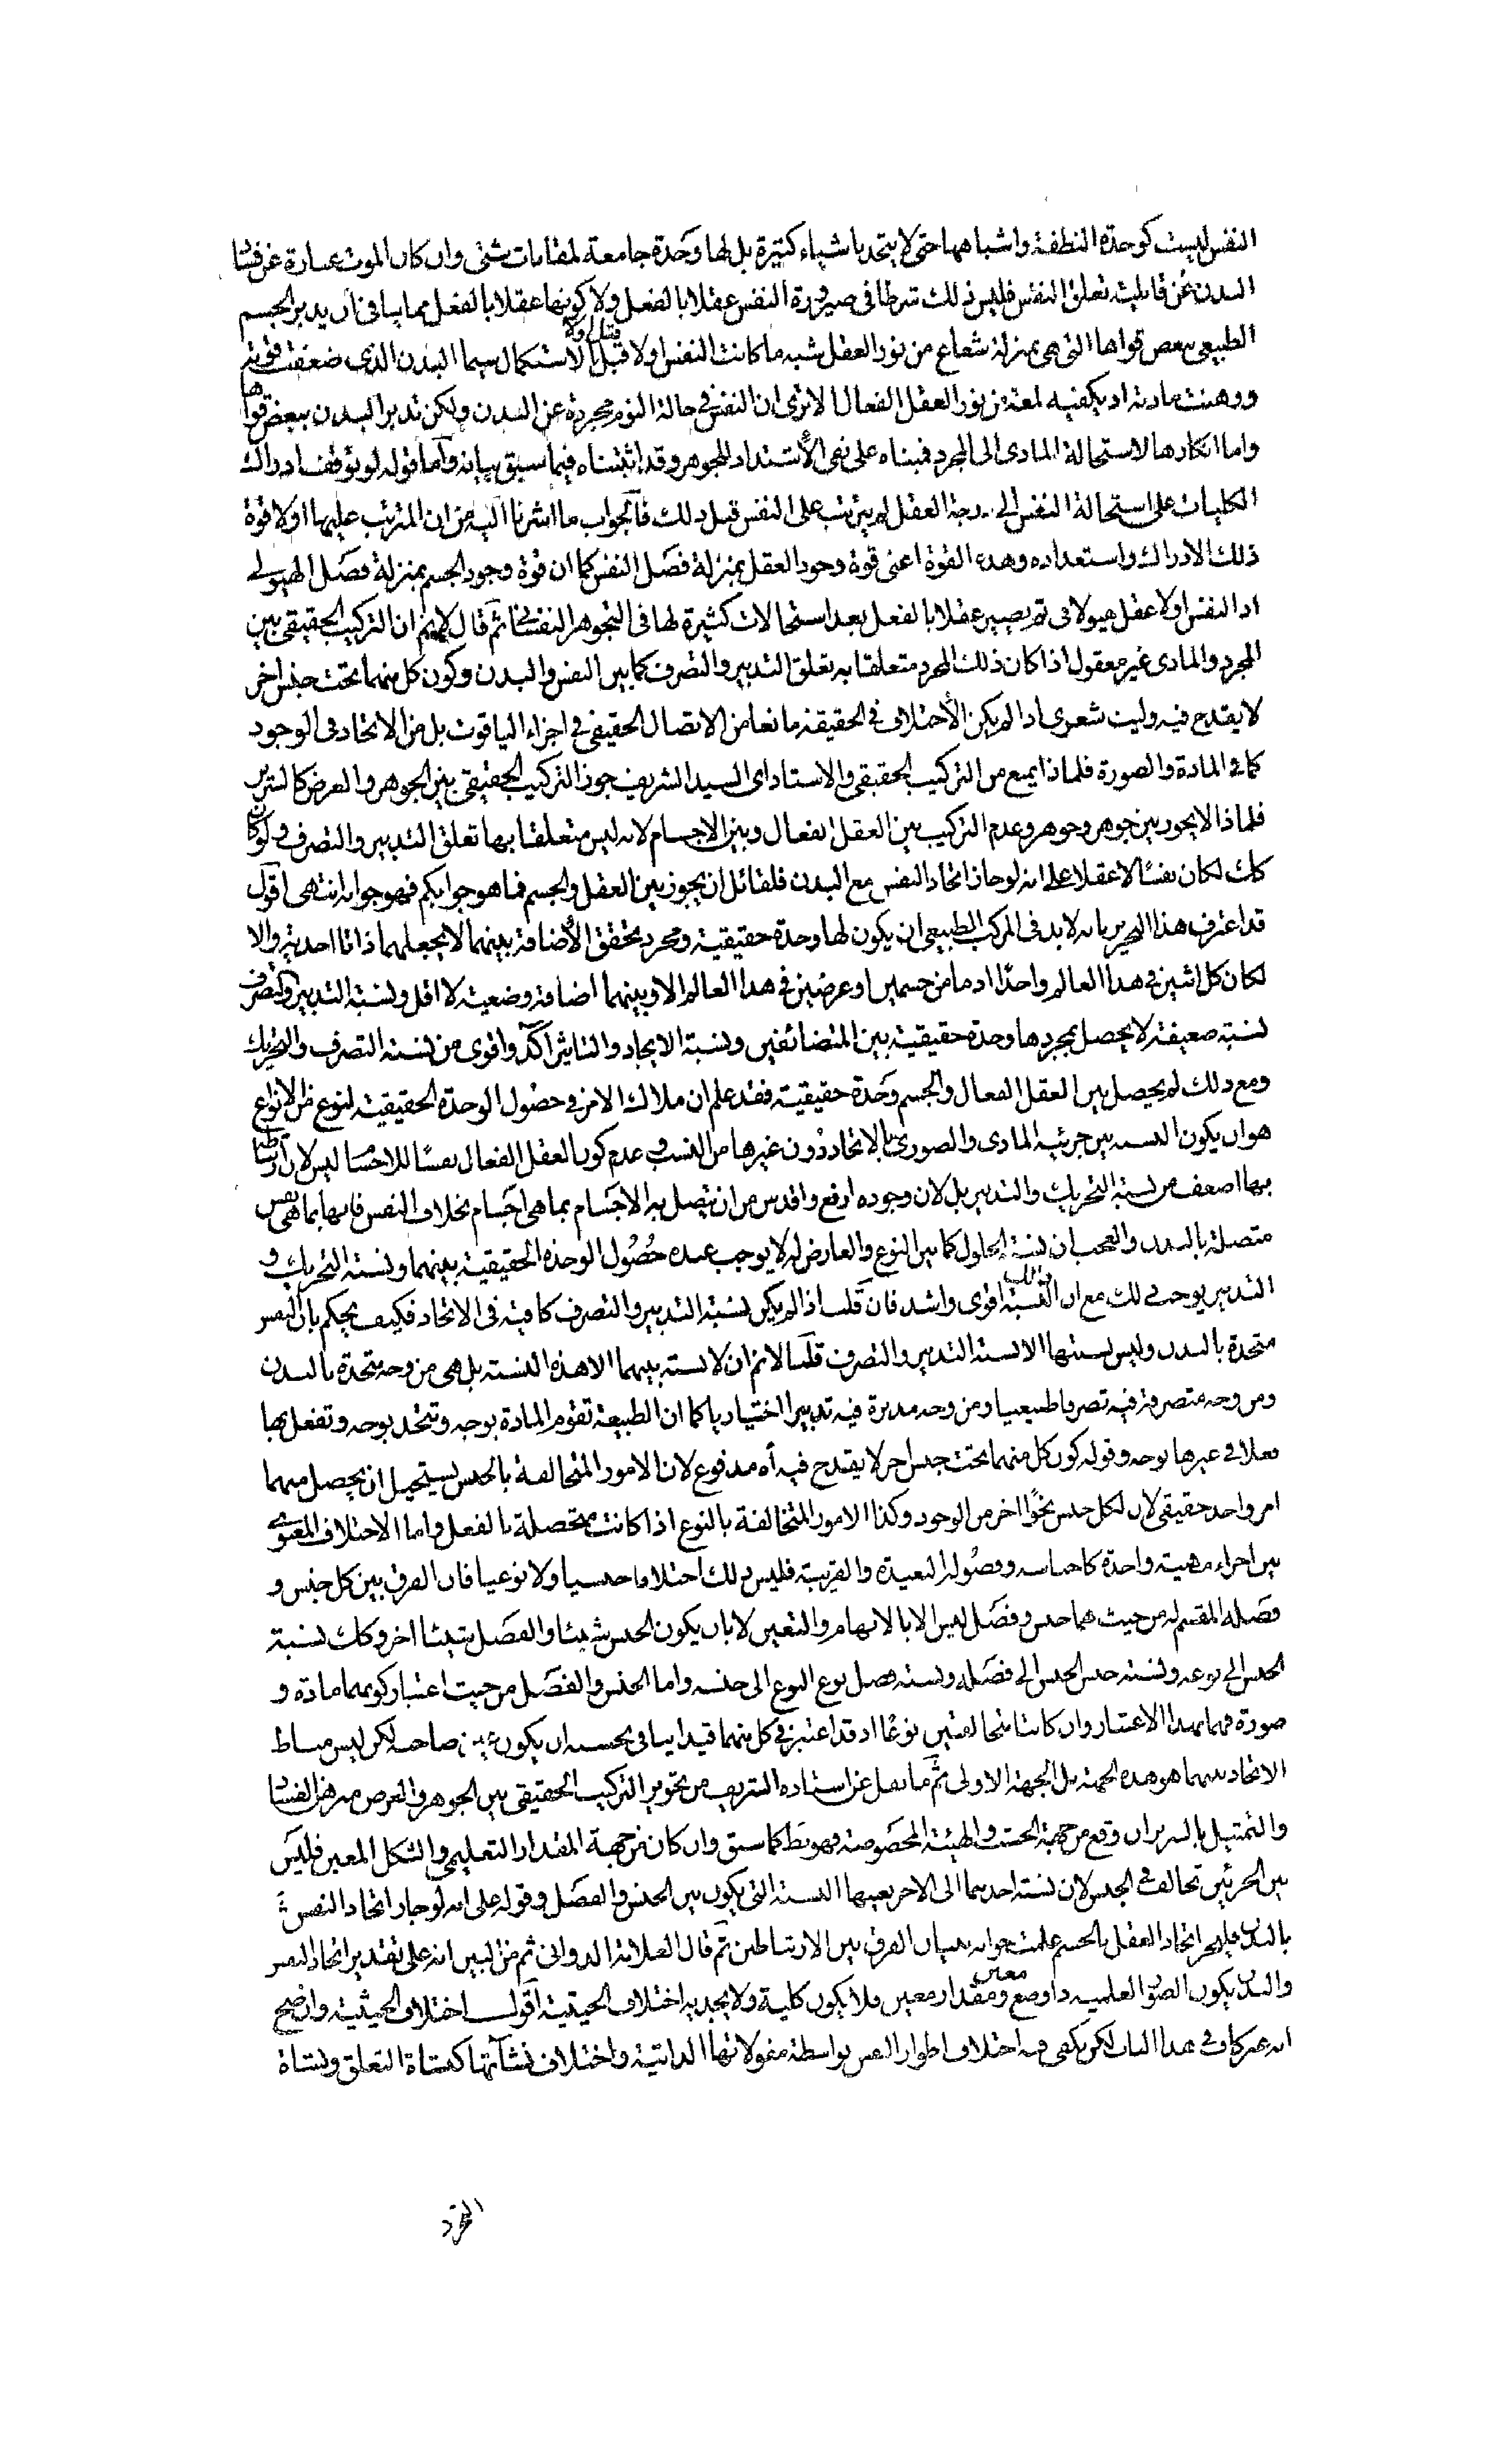 النفس ليست كوحدة النطفة واشباهها حتى لا يتحد باشياء كثيرة بل لها وحدة جامعة لمقامات شتى وان كان الموت عبارة عن فساد
البدن عن قابلية تعلق النفس فليس ذلك شرطا فى صيرورة النفس عقلا بالفعل ولا كونها عقلا بالفعل مما ينافى ان يدبر الجسم
الطبيعى ببعض قواها التى هى بمنزلة شعاع من نور العقل شبه ما كانت النفس اولا قبل الاستكمال سيما البدن الذى ضعفت قوته
ووهنت مادته اذ يكفيه لمعة من نور العقل الفعال الا ترى ان النفس فى حالة النوم مجردة عن البدن ولكن تدبر البدن ببعض قواها
واما انكارها لاستحالة المادى الى المجرد فبناه على نفى الاشتداد للجوهر وقد اثبتناه فيما سبق بيانه واما قوله لو توقف ادراك
الكليات على استحالة النفس الى درجة العقل لم يترتب على النفس قبل ذلك فالجواب ما اشرنا اليه من ان المترتب عليها اولا قوة
ذلك الادراك واستعداده وهذه القوة اعنى قوة وجود العقل بمنزلة فصل النفس كما ان قوة وجود الجسم بمنزلة فصل الهيولى
اذ النفس اولا عقل هيولانى ثم يصير عقلا بالفعل بعد استحالات كثيرة لها فى التجوهر النفسانى ثم قال لانم ان التركيب الحقيقى بين
المجرد والمادى غير معقول اذا كان ذلك المجرد متعلقا به تعلق التدبير والتصرف كما بين النفس والبدن وكون كل منهما تحت جنس اخر
لا يقدح فيه وليت شعرى اذا لم يكن الاختلاف فى الحقيقة مانعا من الاتصال الحقيقى فى اجزاء الياقوت بل من الاتحاد فى الوجود
كما فى المادة والصورة فلماذا يمنع من التركيب الحقيقى والاستاد اى السيد الشريف جوز التركيب الحقيقى بين الجوهر والعرض كالسرير
فلماذا لا يجوز بين جوهر وجوهر وعدم التركيب بين العقل الفعال وبين الاجسام لانه ليس متعلقا بها تعلق التدبير والتصرف ولو كان
كك لكان نفسا لا عقلا على انه لو جاز اتحاد النفس مع البدن فلقائل ان يجوز بين العقل والجسم فما هو جوابكم فهو جوابه انتهى اقول
قد اعترف هذا النحرير بانه لا بد فى المركب الطبيعى ان يكون لها وحدة حقيقية ومجرد تحقق الاضافة بينهما لا يجعلهما ذاتا احدية والا
لكان كل اثنين فى هذا العالم واحدا اذ ما من جسمين او عرضين فى هذا العالم الا وبينهما اضافة وضعية لا اقل ونسبة التدبير والتصرف
نسبة ضعيفة لا يحصل بمجردها وحدة حقيقية بين المتضائفين ونسبة الايجاد والتاثير آكد واقوى من نسبة التصرف والتحريك
ومع ذلك لم يحصل بين العقل الفعال والجسم وحدة حقيقية فقد علم ان ملاك الامر فى حصول الوحدة الحقيقية لنوع من الانواع
هو ان يكون النسبة بين جزئيه المادى والصورى بالاتحاد دون غيرها من النسب وعدم كون العقل الفعال نفسا للاجسام ليس لان ارتباطه
بها اضعف من نسبة التحريك والتدبير بل لان وجوده ارفع واقدس من ان يتصل به الاجسام بما هى اجسام بخلاف النفس فانها بما هى نفس
متصلة بالبدن والعجب ان نسبة الحلول كما بين النوع والعارض له لا يوجب عنده حصول الوحدة الحقيقية بينهما ونسبة التحريك و
التدبير يوجب ذلك مع ان النسبة اقوى واشد فان قلت اذا لم يكن نسبة التدبير والتصرف كافية فى الاتحاد فكيف يحكم بان النفس
متحدة بالبدن وليس نسبتها الا نسبة التدبير والتصرف قلنا لا نم ان لا نسبة بينهما الا هذه النسبة بل هى من وجه متحدة بالبدن
ومن وجه متصرفة فيه تصرفا طبيعيا ومن وجه مدبرة فيه تدبيرا اختياريا كما ان الطبيعة تقوم المادة بوجه وتتحد بوجه وتفعل بها
فعلا فى غيرها بوجه وقوله كون كل منهما تحت جنس اخر لا يقدح فيه أه مدفوع لان الامور المتخالفة بالجنس يستحيل ان يحصل منهما
امر واحد حقيقى لان لكل جنس نحوا اخر من الوجود وكذا الامور المتخالفة بالنوع اذا كانت متحصلة بالفعل واما الاختلاف المعنوى
بين اجزاء مهية واحدة كاجناسه وفصوله البعيدة والقريبة فليس ذلك اختلافا جنسيا ولا نوعيا فان الفرق بين كل جنس و
فصله المقسم له من حيث هما جنس وفصل ليس الا بالابهام والتعين لا بان يكون الجنس شيئا والفصل شيئا اخر وكك نسبة
الجنس الى نوعه ونسبة جنس الجنس الى فصله ونسبة فصل نوع النوع الى جنسه واما الجنس والفصل من حيث اعتبار كونهما مادة و
صورة فهما بهذا الاعتبار وان كانتا متخالفتين نوعا اذ قد اعتبر فى كل منهما قيد ينافى بحسبه ان يكون عين صاحبه لكن ليس مناط
الاتحاد بينهما هو هذه الجهة بل الجهة الاولى ثم ما نقل عن استاده الشريف من تجويز التركيب الحقيقى بين الجوهر والعرض فيه ظاهر الفساد
والتمثيل بالسرير ان وقع من جهة الخشب والهيئة المخصوصة فهو بط كما سبق وان كان من جهة المقدار التعليمى والشكل المعين فليس
بين الجزئين تخالف فى الجنس لان نسبة احدهما الى الاخر بعينها النسبة التى يكون بين الجنس والفصل وقوله على انه لو جاز اتحاد النفس
بالبدن فليجز اتحاد العقل بالجسم علمت جوابه ببيان الفرق بين الارتباطين ثم قال العلامة الدوانى ثم من البين انه على تقدير اتحاد النفس
والبدن يكون الصور العلمية ذا وضع معين ومقدار معين فلا يكون كلية ولا يجديه اختلاف الحيثية اقول اختلاف الحيثية واضح
انه غير كاف فى هذا الباب لكن يكفى فيه اختلاف اطوار النفس بواسطة مقولاتها الذاتية واختلاف نشآتها كنشاة التعلق ونشاة
التجرد